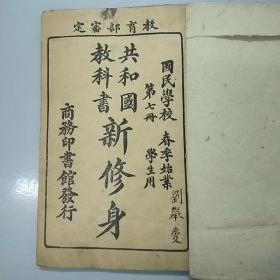 教育部審定
國民學校
春季始業
第七冊
學生用
共和國
教科書
新修身
商務印書館發行